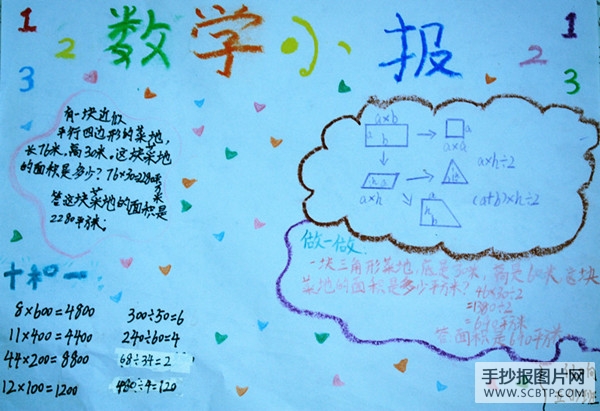 1 数学小报 1
2 2
3 3
有一块近似
平行四边形的菜地,
长76米,高30米。这块菜地
的面积是多少?76×30=2280平方米
答这块菜地的面积是
2280平方米
a×b
a
b
a
a×a
a×h÷2
a×h
(a+b)×h÷2
做一做:
一块三角形菜地,底是30米,高是60米,这块
菜地的面积是多少平方米? 46×30÷2
=1380÷2
=640平方米
答面积是640平方米
十和一:
8×600=4800 300÷50=6
11×400=4400 240÷60=4
44×200=8800 68÷34=2
12×100=1200 480÷4=120
手抄报图片网
WWW.SCBTP.COM